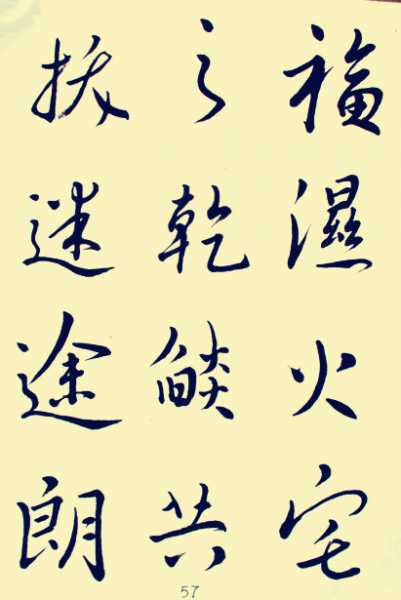 福濕火宅
之乾燄共
拔迷途朗
57